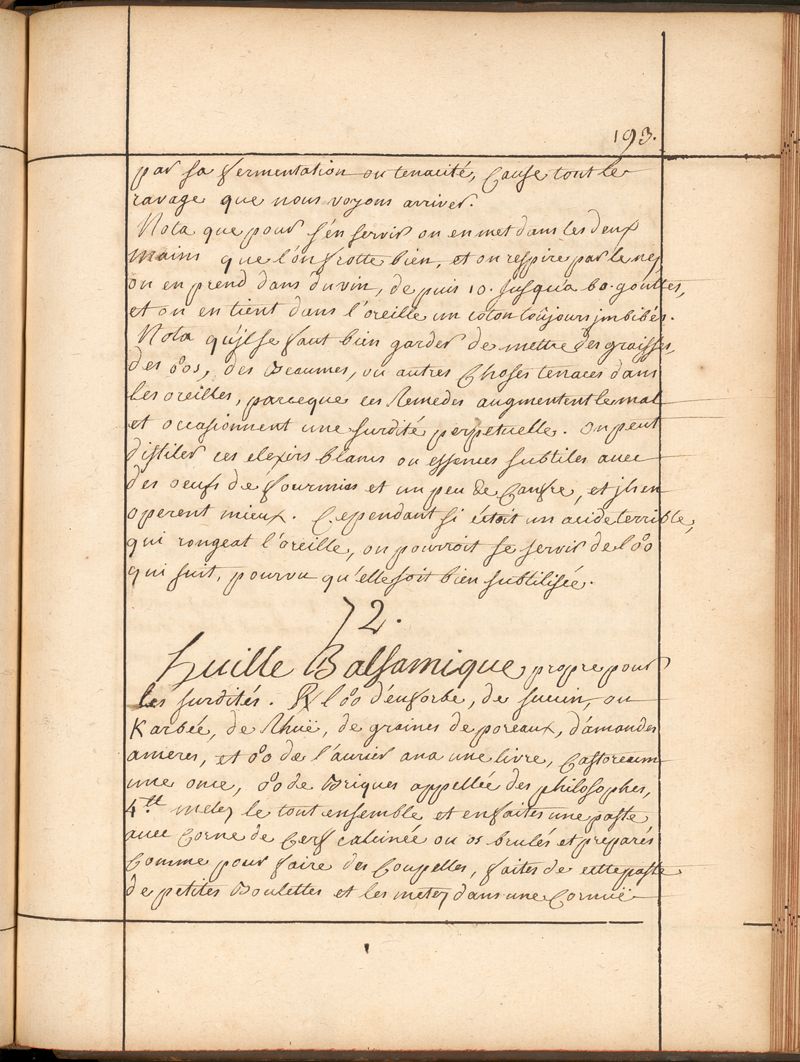 193.
par sa fermentation ou tenacité, Cause tout le
ravage que nous voyons arriver.
Nota que pour s'en servir on en met dans les deux
mains que l'on frotte bien, et on respire par le nez,
on en prend dans du vin, de puis 10. jusqua 60. gouttes,
et on en tient dans l'oreille un coton toûjours jmbibés.
Nota qu'jl se faut bien garder de mettre des graisses,
des oos, des Beaumes, ou autres Choses tenaces dans
les oreilles, parceque ces Remedes augmentent le mal
et occasionnent une surdité perpetuelle. On peut
distiler ces elexirs blancs ou essences subtiles avec
des oeufs de fourmies et un peu de Canfre, et jls en
operent mieux. Cependant si c'étoit un acide terrible,
qui rongeat l'oreille, on pourroit se servir de l'oo
qui suit, pourvu qu'elle soit bien subtilisée.
72.
Huille Balsamique propre pour
les surdités. R l'oo d'enforbe, de sucin, ou
Karbée, de Rhuë, de graines de poreaux, d'amandes
ameres, et oo de l'aurier ana une livre, Castoreum
une once, oo de Briques appellée des philosophes,
4.tt metez le tout ensemble et en faites une paste
avec Corne de Cerf calcinée ou os brulés et preparés
Comme pour faire des Coupelles, faites de cette paste
de petites Boulettes et les metez dans une Cornuë